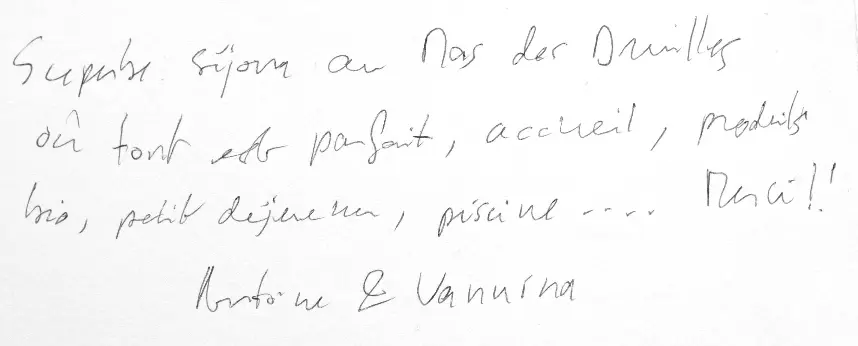 Superbe séjour au Mas des Druilles
où tout est parfait, accueil, produits
bio, petit déjeuner, piscine .... Merci!!
Antoine & Vannina